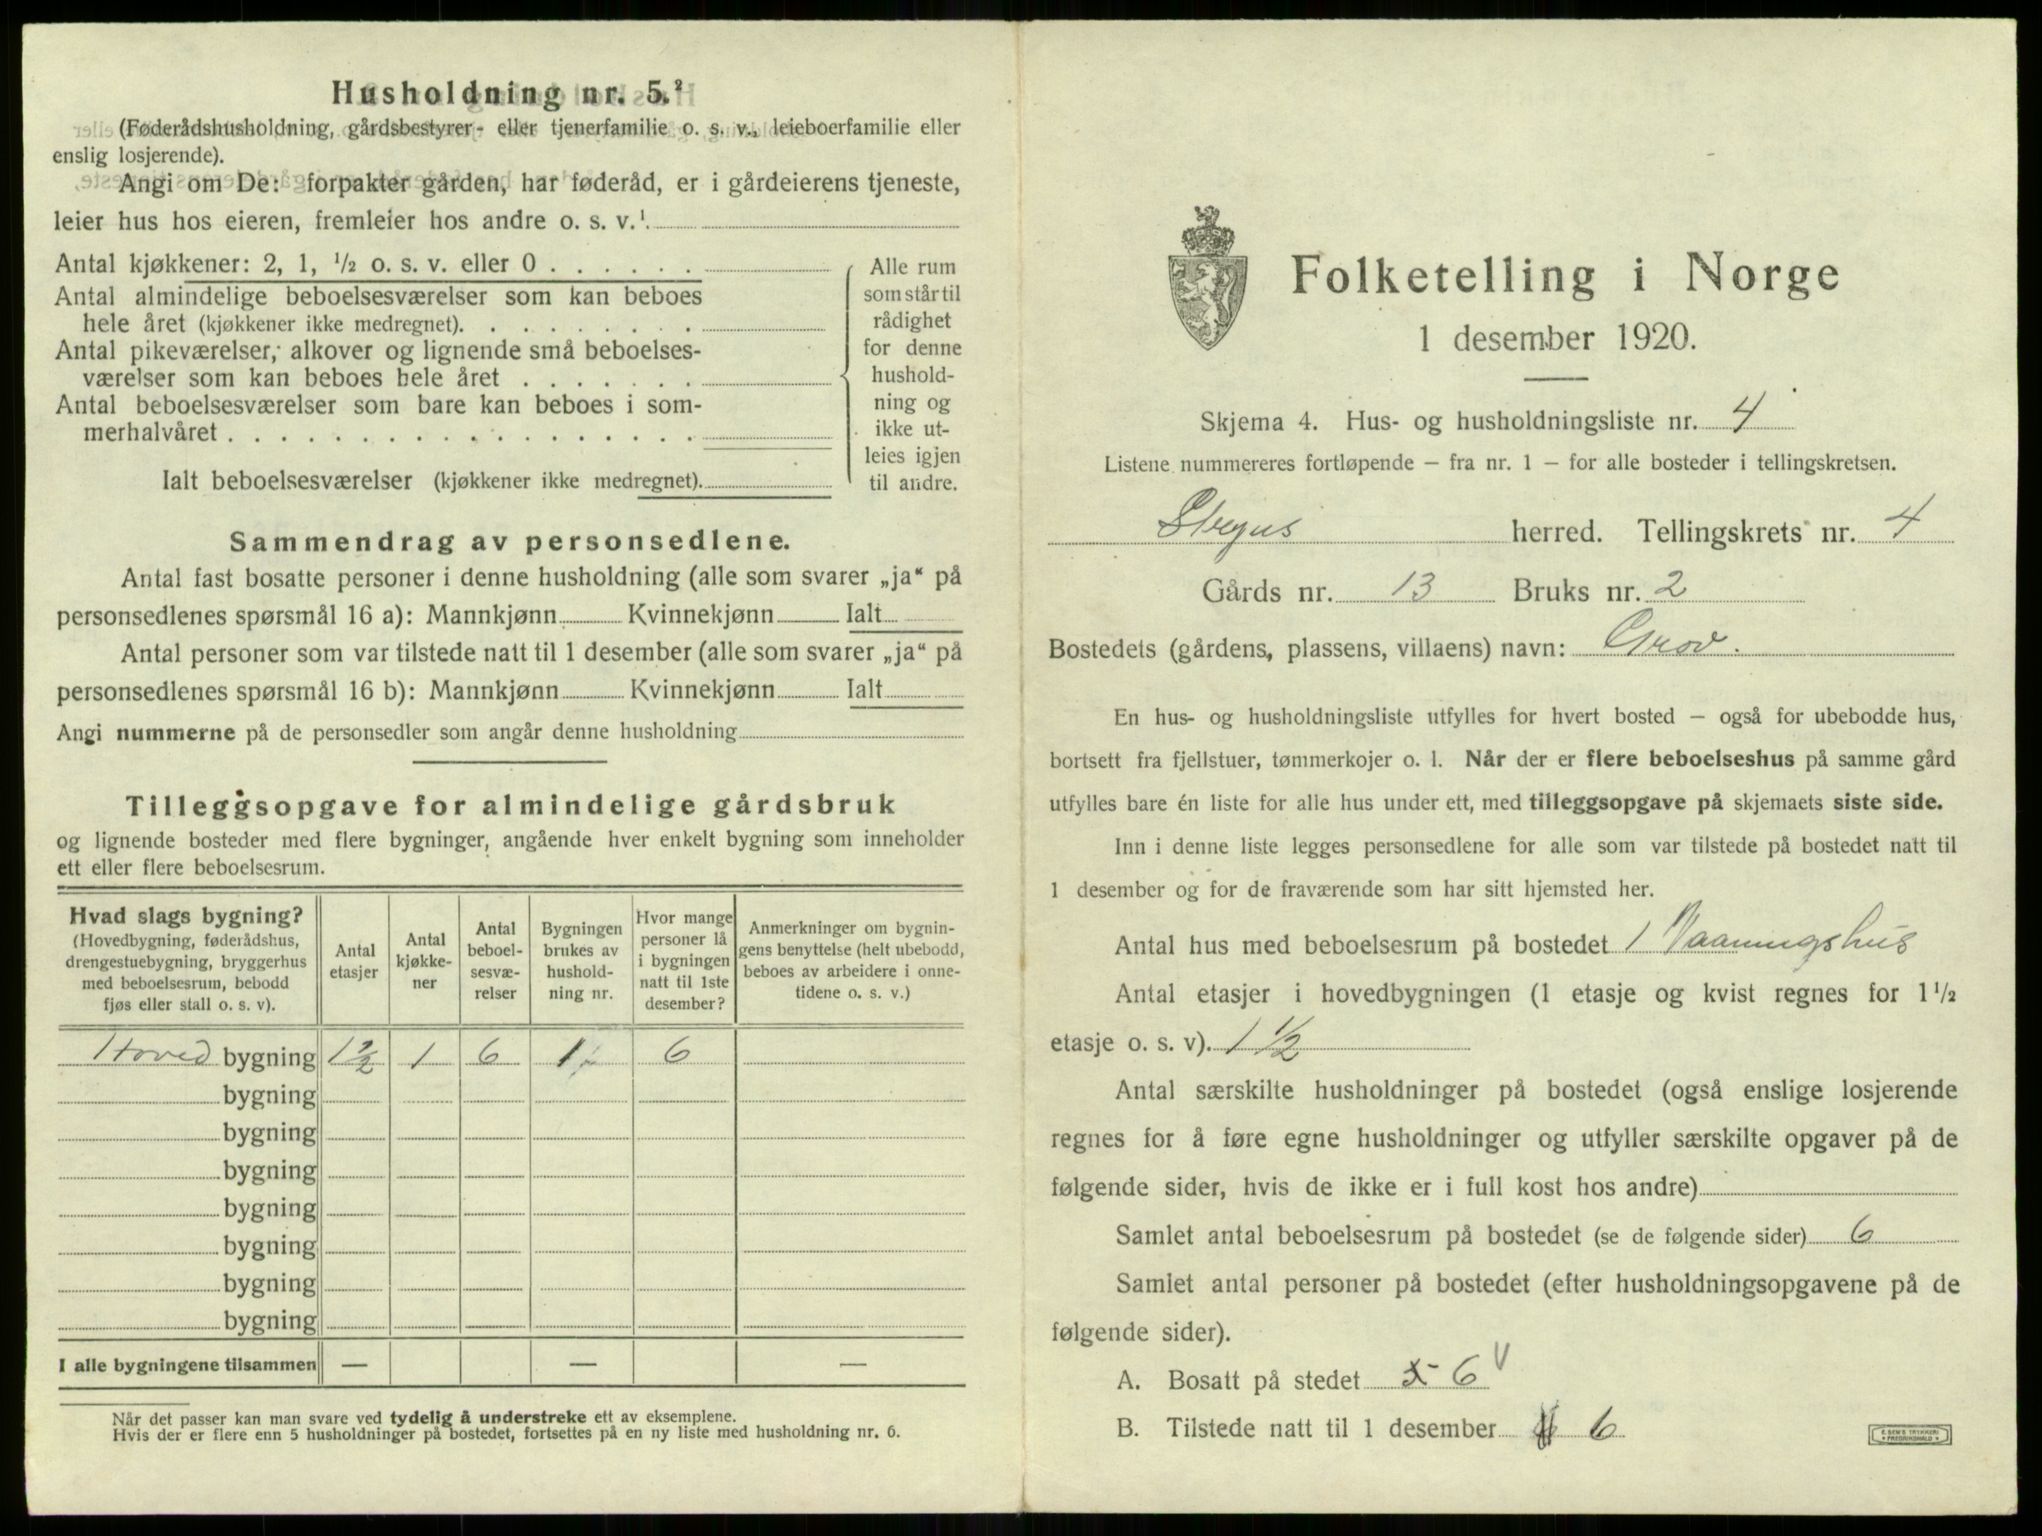 Husholdning nr. 5.²
(Føderådshusholdning, gårdsbestyrer- eller tjenerfamilie o. s. v., leieboerfamilie eller
enslig losjerende).
Angi om De: forpakter gården, har føderåd, er i gårdeierens tjeneste,
leier hus hos eieren, fremleier hos andre o. s. v.¹
Antal kjøkkener: 2, 1, ½ o. s. v. eller 0 . . . . . .
Antal almindelige beboelsesværelser som kan beboes
hele året (kjøkkener ikke medregnet). . . . . . . . .
Antal pikeværelser, alkover og lignende små beboelses-
værelser som kan beboes hele året . . . . . . .
Antal beboelsesværelser som bare kan beboes i som-
merhalvåret . . . . . . . . . . . . . . . . . .
Ialt beboelsesværelser (kjøkkener ikke medregnet).
Alle rum
som står til
rådighet
for denne
hushold-
ning og
ikke ut-
leies igjen
til andre.
Sammendrag av personsedlene.
Antal fast bosatte personer i denne husholdning (alle som svarer „ja“ på
personsedlenes spørsmål 16 a): Mannkjønn Kvinnekjønn Ialt
Antal personer som var tilstede natt til 1 desember (alle som svarer „ja“ på
personsedlenes spørsmål 16 b): Mannkjønn Kvinnekjønn Ialt
Angi nummerne på de personsedler som angår denne husholdning
Tilleggsopgave for almindelige gårdsbruk
og lignende bosteder med flere bygninger, angående hver enkelt bygning som inneholder
ett eller flere beboelsesrum.
Hvad slags bygning?
(Hovedbygning, føderådshus,
drengestuebygning, bryggerhus
med beboelsesrum, bebodd
fjøs eller stall o. s. v).
Antal
etasjer
Antal
kjøkke-
ner
Antal
beboel-
sesvæ-
relser
Bygningen
brukes av
hushold-
ning nr.
Hvor mange
personer lå
i bygningen
natt til 1ste
desember?
Anmerkninger om bygnin-
gens benyttelse (helt ubebodd,
beboes av arbeidere i onne-
tidene o. s. v.)
Hoved bygning 1½ 1 6 1 6
bygning
bygning
bygning
bygning
bygning
bygning
bygning
I alle bygningene tilsammen — — —
Når det passer kan man svare ved tydelig å understreke ett av eksemplene.
Hvis der er flere enn 5 husholdninger på bostedet, fortsettes på en ny liste med husholdning nr. 6.
Folketelling i Norge
1 desember 1920.
Skjema 4. Hus- og husholdningsliste nr. 4
Listene nummereres fortløpende – fra nr. 1 – for alle bosteder i tellingskretsen.
herred. Tellingskrets nr. 4
Gårds nr. 13 Bruks nr. 2
Bostedets (gårdens, plassens, villaens) navn: Grov.
En hus- og husholdningsliste utfylles for hvert bosted – også for ubebodde hus,
bortsett fra fjellstuer, tømmerkojer o. l. Når der er flere beboelseshus på samme gård
utfylles bare én liste for alle hus under ett, med tilleggsopgave på skjemaets siste side.
Inn i denne liste legges personsedlene for alle som var tilstede på bostedet natt til
1 desember og for de fraværende som har sitt hjemsted her.
Antal hus med beboelsesrum på bostedet 1 Vaaningshus
Antal etasjer i hovedbygningen (1 etasje og kvist regnes for 1½
etasje o. s. v). 1½
Antal særskilte husholdninger på bostedet (også enslige losjerende
regnes for å føre egne husholdninger og utfyller særskilte opgaver på de
følgende sider, hvis de ikke er i full kost hos andre)
Samlet antal beboelsesrum på bostedet (se de følgende sider) 6
Samlet antal personer på bostedet (efter husholdningsopgavene på de
følgende sider).
A. Bosatt på stedet 6
B. Tilstede natt til 1 desember 6
E. SEM'S TRYKKERI
FREDRIKSHALD